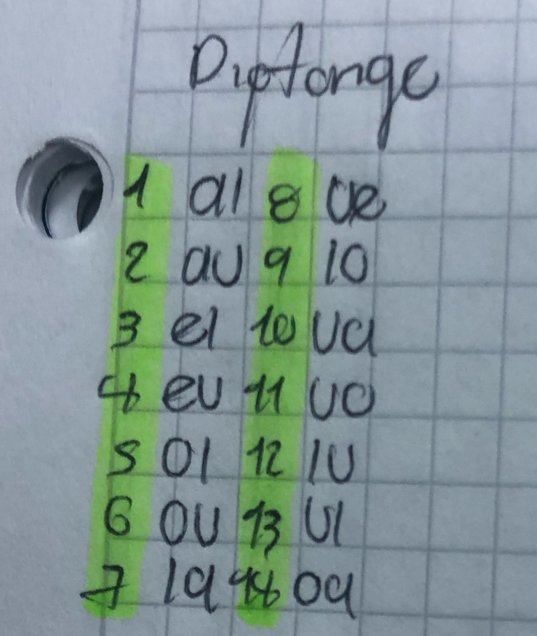 Diptonge
1 ai 8 ue
2 au 9 io
3 ei 10 ua
4 eu 11 uo
5 oi 12 iu
6 ou 13 ui
7 ia 14 oa